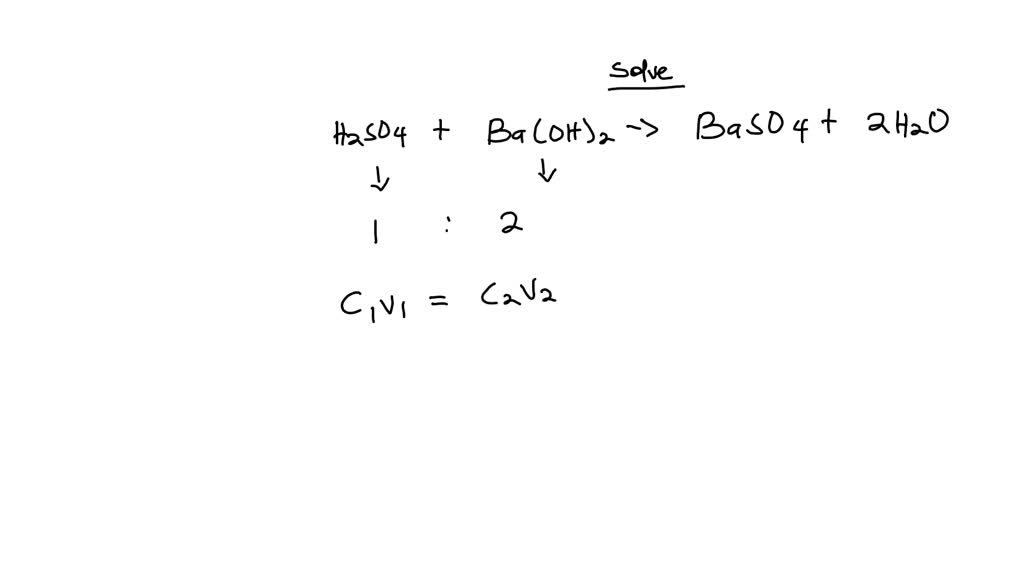 Solve
H2SO4 + Ba(OH)2 -> BaSO4 + 2H2O
↓ ↓
1 : 2
C1V1 = C2V2